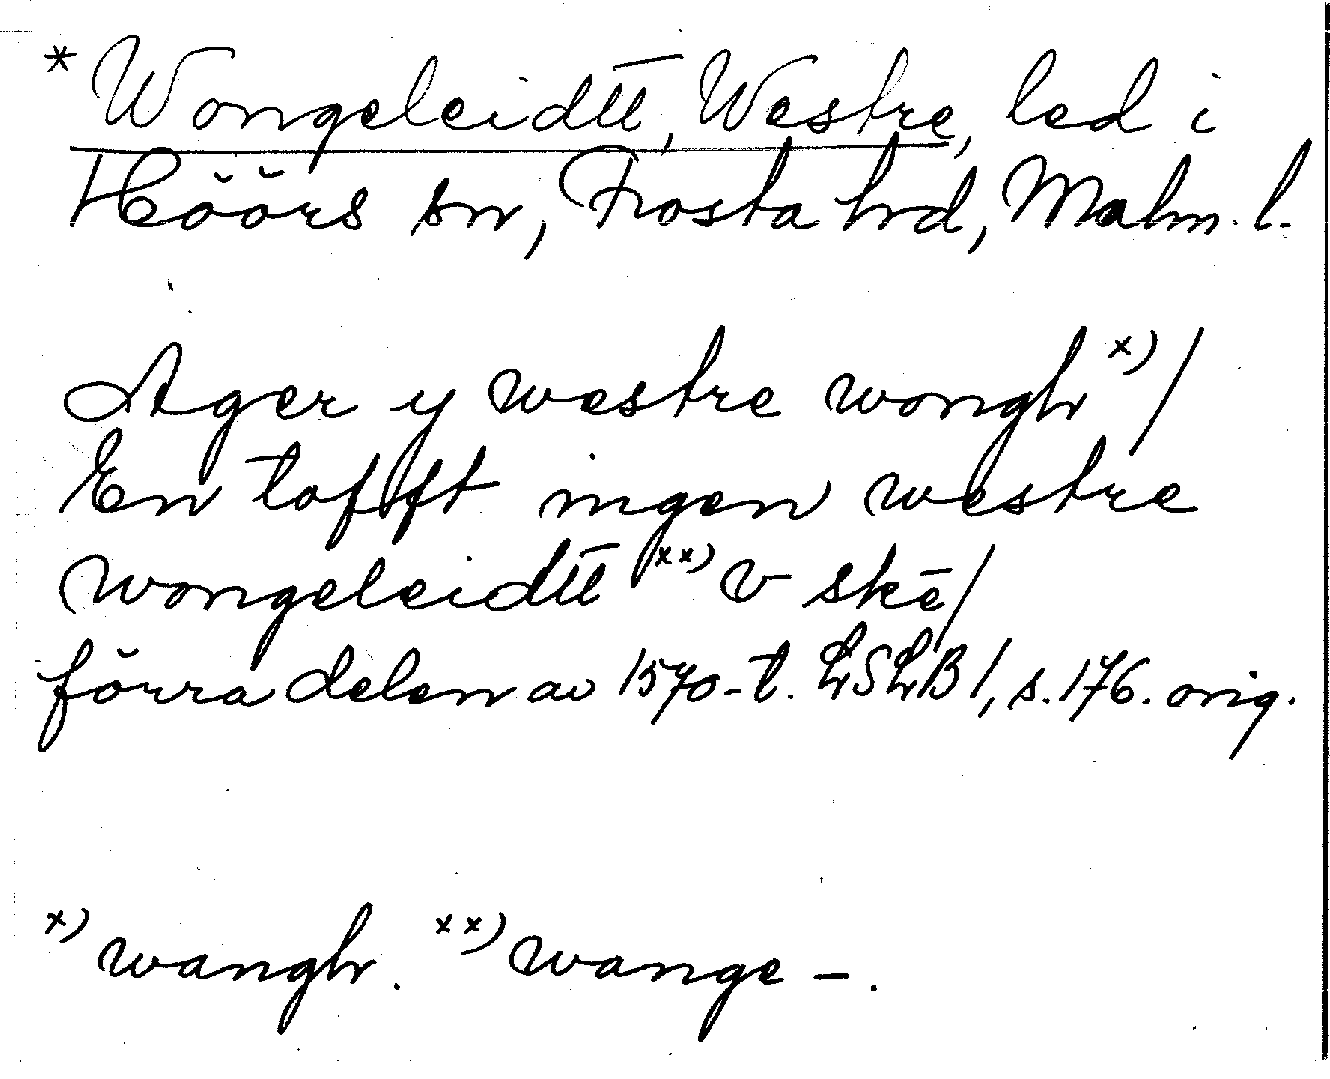 *Wongeleidtt, Westre, led i
Höörs sn, Frosta hrd, Malm. l.
Ager y westre wongh x) /
En tofft ingen westre
wongeleidtt xx) v skē /
förra delen av 1570-t. LSLB 1, s. 176. orig.
x) wangh. xx) wange - .